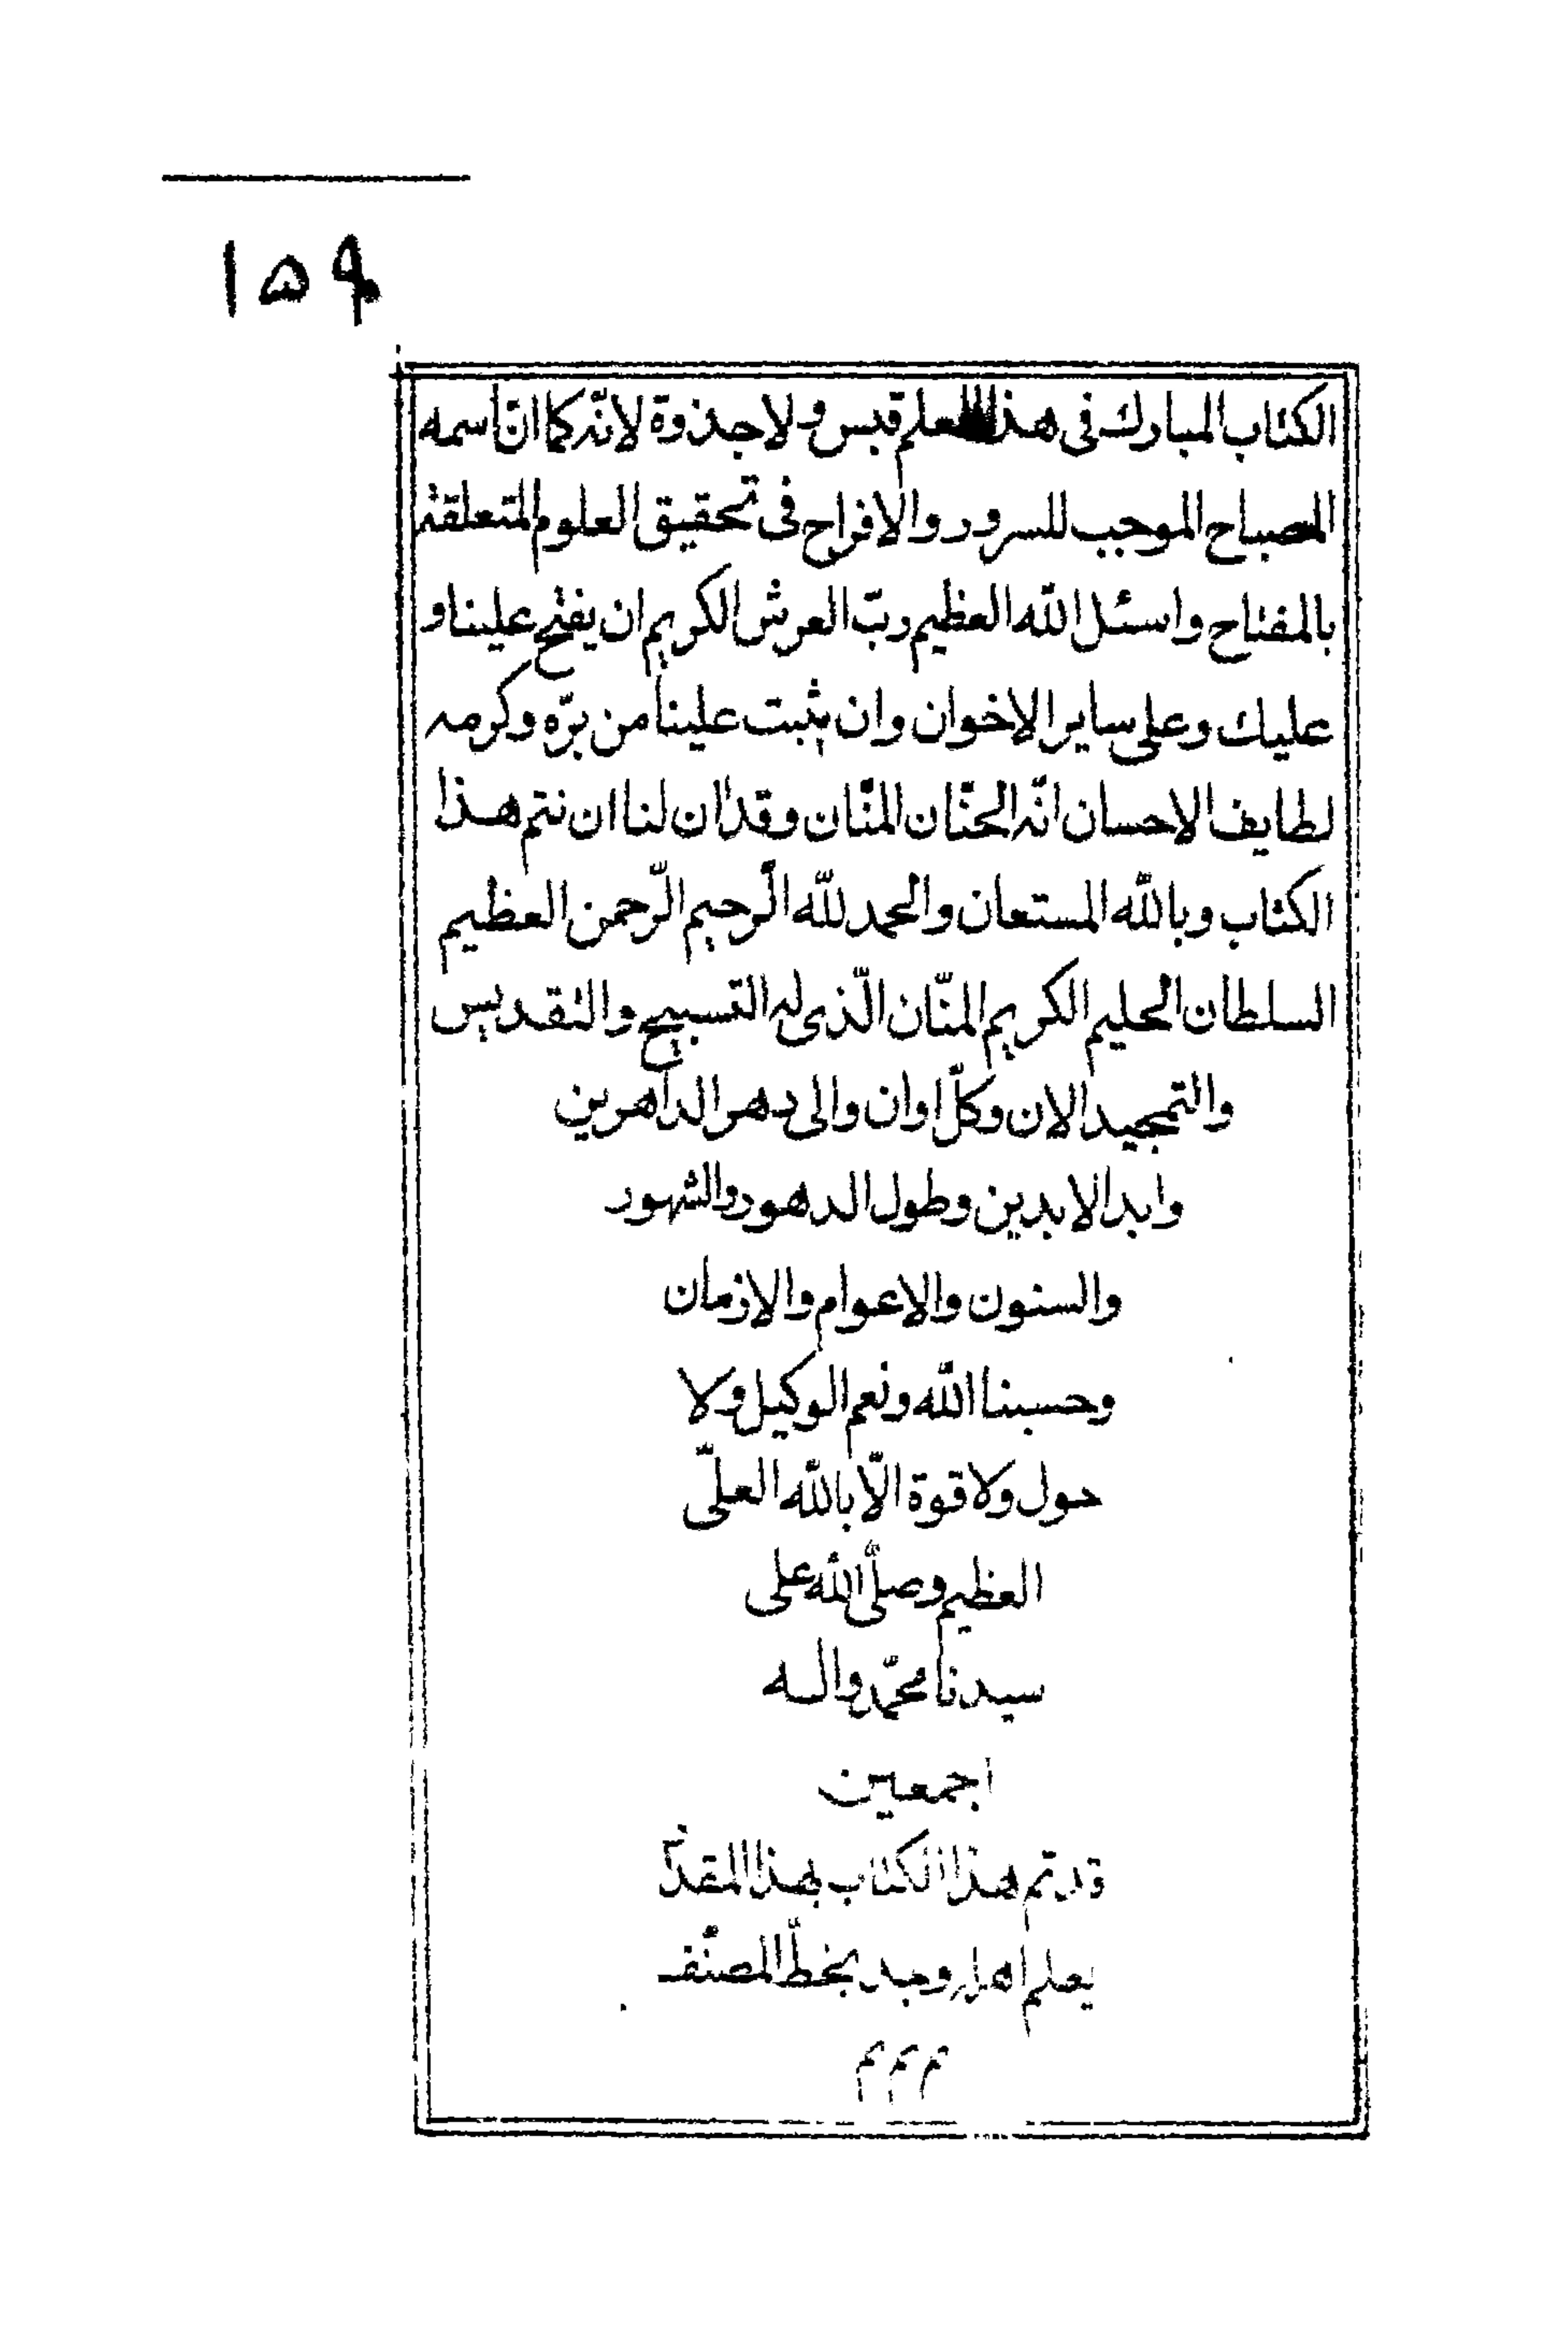 ۱۵۹
الكتاب المبارك فى هذا العلم قبس ولا جذوة لانّه كما انّ اسمه
المصباح الموجب للسرور والافراح فى تحقيق العلوم المتعلقة
بالمفتاح واسئل الله العظيم ربّ العرش الكريم ان يفتح علينا و
عليك وعلى ساير الاخوان وان يثبت علينا من برّه وكرمه
لطايف الاحسان انّه الحنّان المنّان وقد ان لنا ان نتم هذا
الكتاب وبالله المستعان والحمد لله الرّحيم الرّحمن العظيم
السلطان الحليم الكريم المنّان الّذى له التسبيح والتقديس
والتمجيد الان وكلّ اوان والى دهر الداهرين
وابد الابدين وطول الدهور والشهور
والسنون والاعوام والازمان
وحسبنا الله ونعم الوكيل ولا
حول ولا قوة الّا بالله العلّى
العظيم وصلّى الله على
سيدنا محمّد واله
اجمعين
قد تم هذا الكتاب بهذا المقدّ
يعلم وجد بخطّ المصنّف
م م م